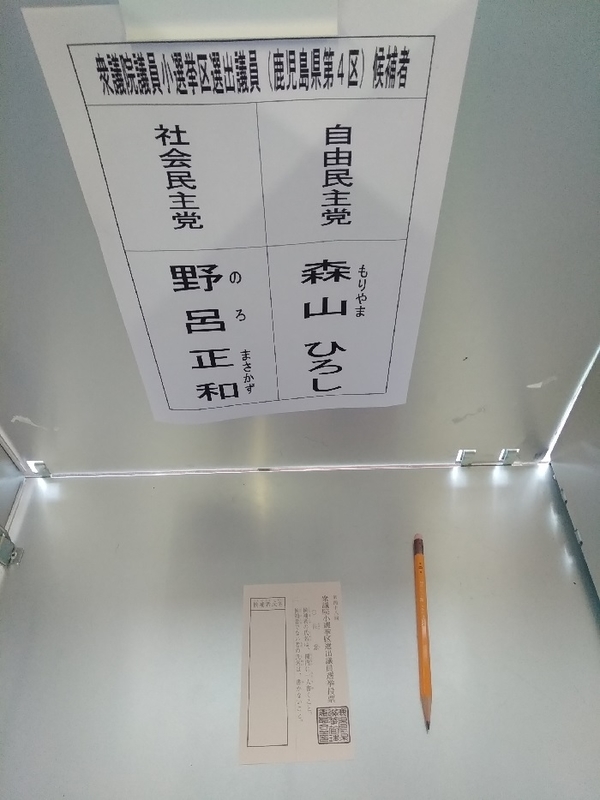 衆議院議員小選挙区選出議員（鹿児島県第４区）候補者
自由民主党
森山ひろし
もりやま
社会民主党
野呂正和
のろ
まさかず
衆議院小選挙区選出議員選挙投票
候補者氏名